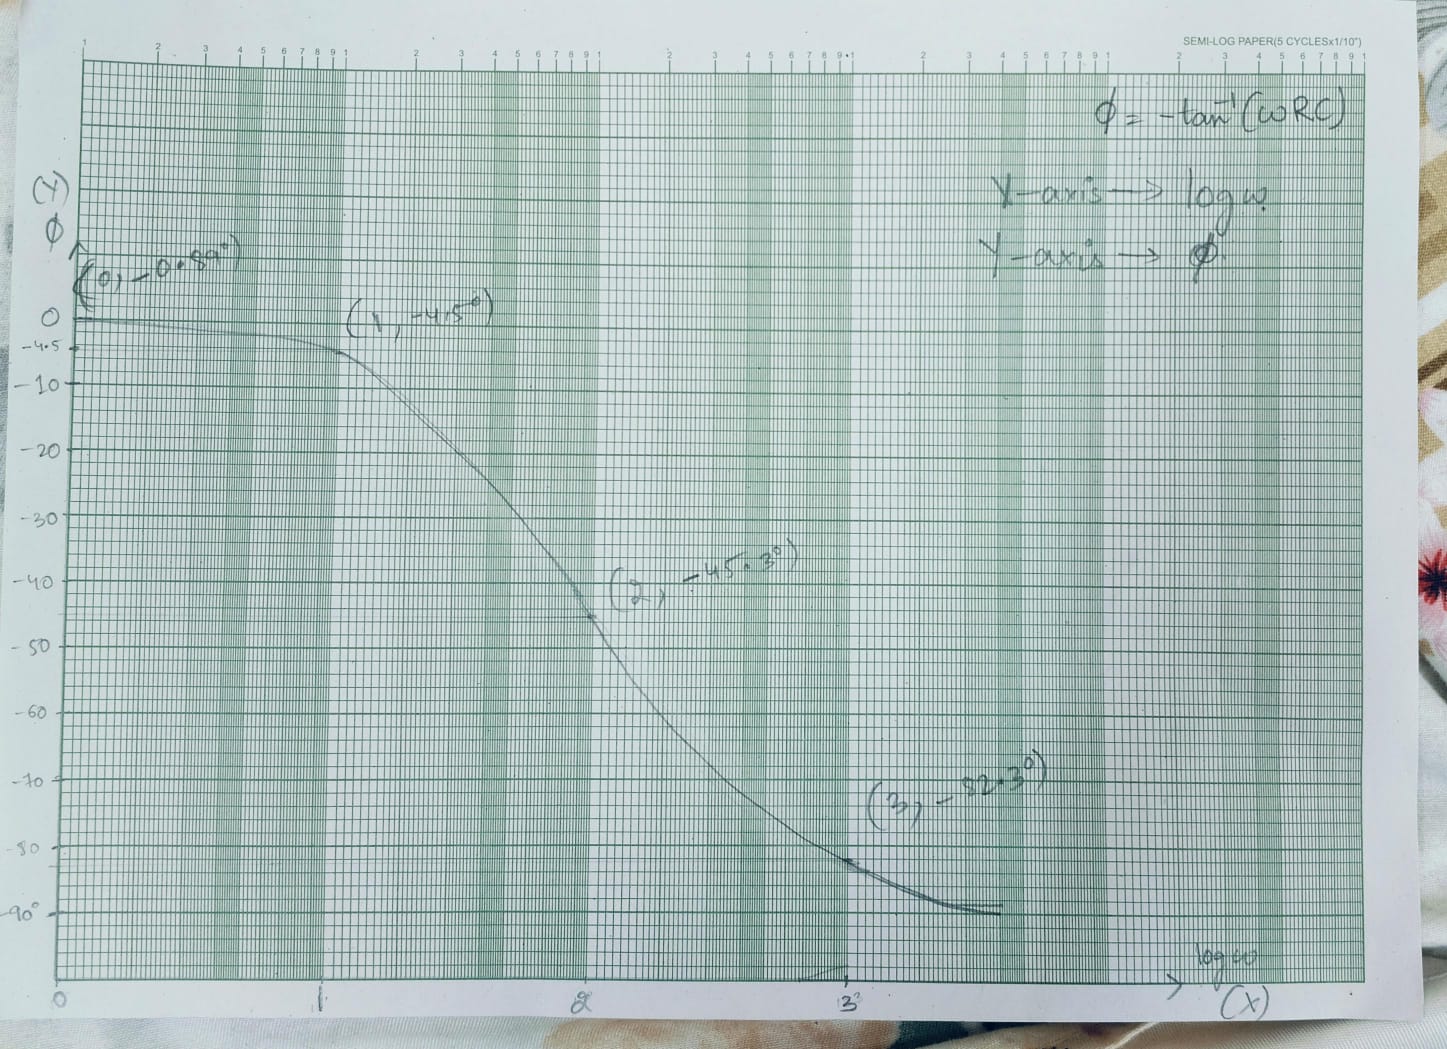 SEMI-LOG PAPER(5 CYCLESx1/10")
1 2 3 4 5 6 7 8 9 1 2 3 4 5 6 7 8 9 1 2 3 4 5 6 7 8 9 1 2 3 4 5 6 7 8 9 1 2 3 4 5 6 7 8 9 1
ϕ = -tan⁻¹(ωRC)
X-axis → log ω.
Y-axis → ϕ.
(Y)
ϕ
(0, -0.89°)
(1, -4.5°)
0
-4.5
-10
-20
-30
-40
(2, -45.3°)
-50
-60
-70
(3, -82.3°)
-80
-90°
log ω
0 1 2 3 (X)